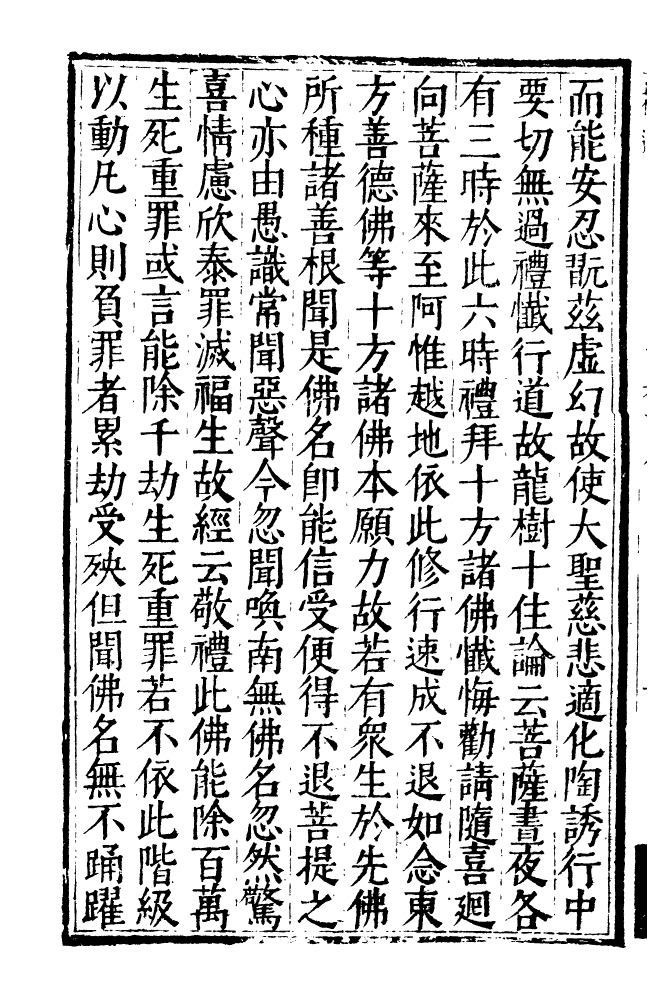 而能安忍翫茲虛幻故使大聖慈悲適化陶誘行中
要切無過禮懺行道故龍樹十住論云菩薩晝夜各
有三時於此六時禮拜十方諸佛懺悔勸請隨喜廻
向菩薩來至阿惟越地依此修行速成不退如念東
方善德佛等十方諸佛本願力故若有眾生於先佛
所種諸善根聞是佛名即能信受便得不退菩提之
心亦由愚識常聞惡聲今忽聞喚南無佛名忽然驚
喜情慮欣泰罪滅福生故經云敬禮此佛能除百萬
生死重罪或言能除千劫生死重罪若不依此階級
以動凡心則負罪者累劫受殃但聞佛名無不踊躍